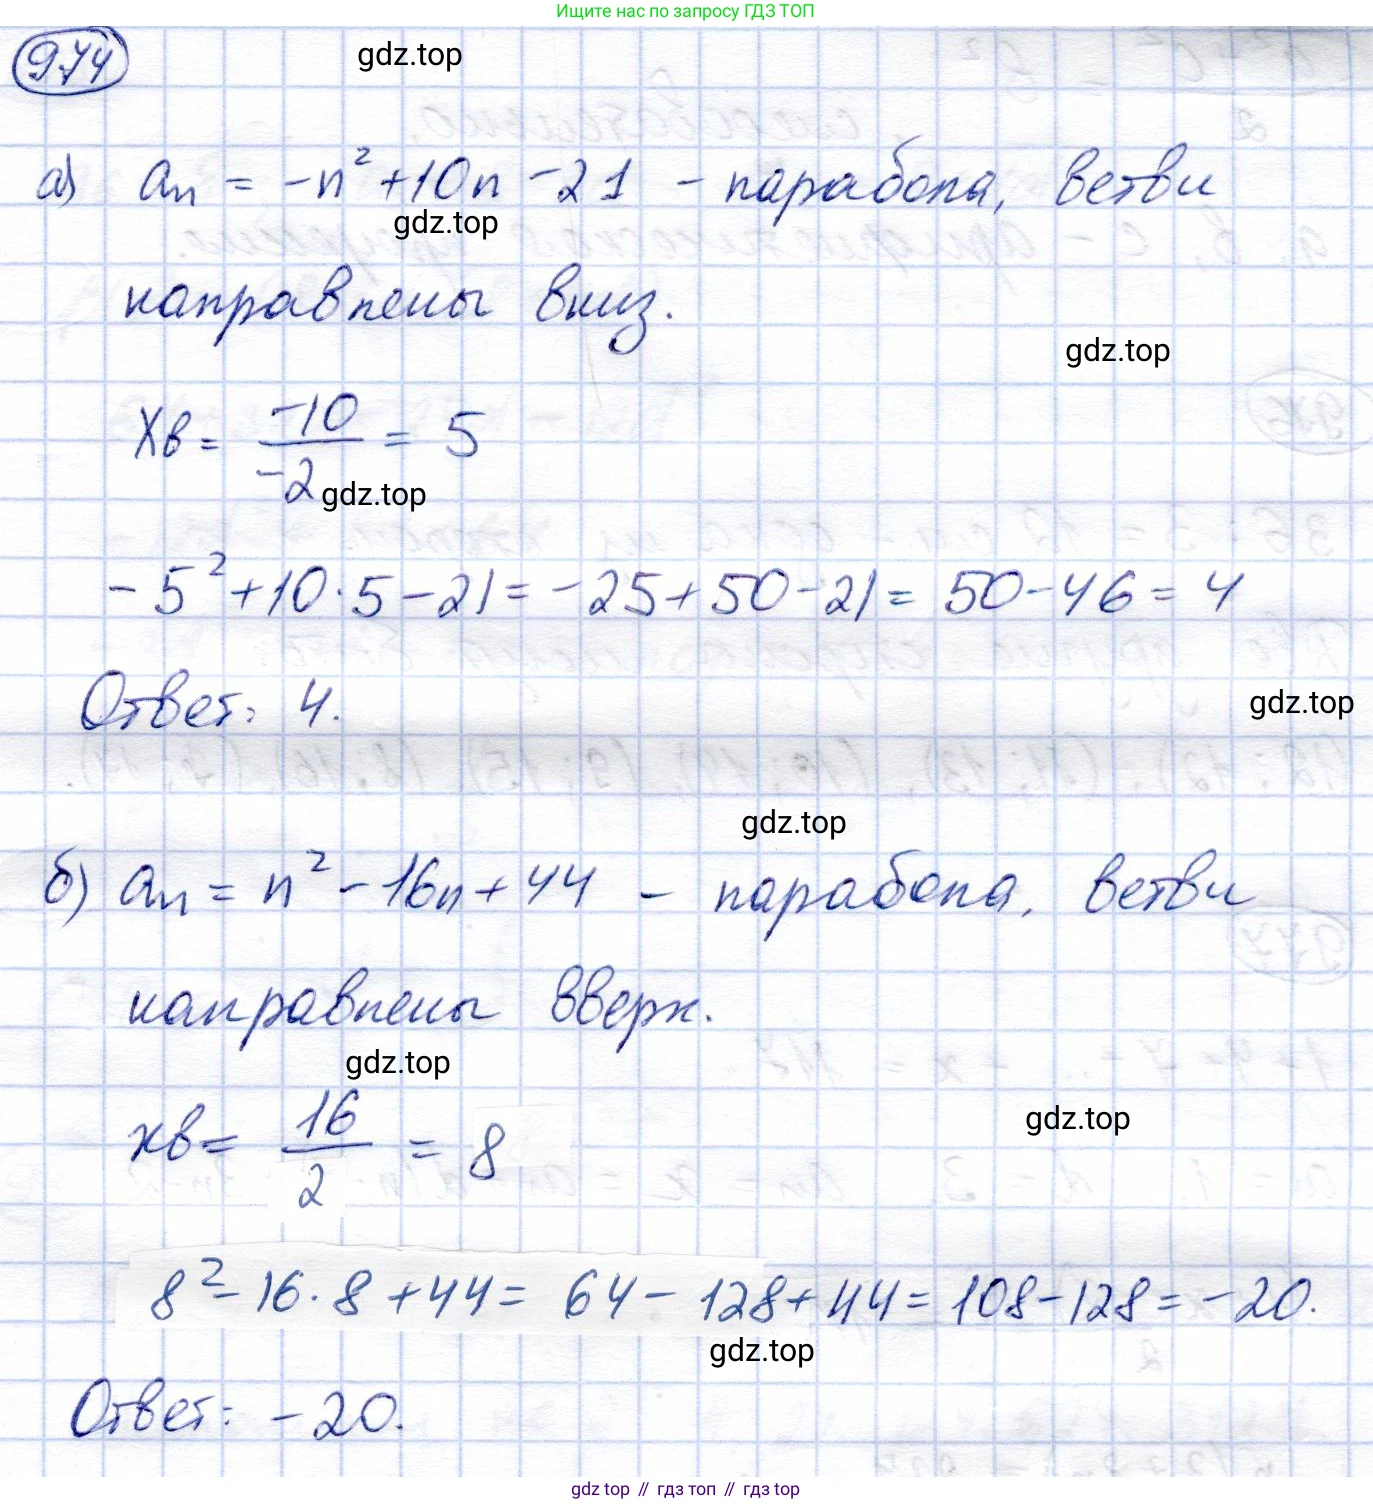 Ищите нас по запросу ГДЗ ТОП
974
gdz.top
а) aₙ = -n² + 10n - 21 - парабола, ветви
gdz.top
направлены вниз.
gdz.top
xв = -10/-2 = 5
gdz.top
-5² + 10·5 - 21 = -25 + 50 - 21 = 50 - 46 = 4
Ответ: 4.
gdz.top
gdz.top
б) aₙ = n² - 16n + 44 - парабола, ветви
направлены вверх.
gdz.top
gdz.top
xв = 16/2 = 8
8² - 16·8 + 44 = 64 - 128 + 44 = 108 - 128 = -20.
gdz.top
Ответ: -20.
gdz top // гдз топ // гдз top